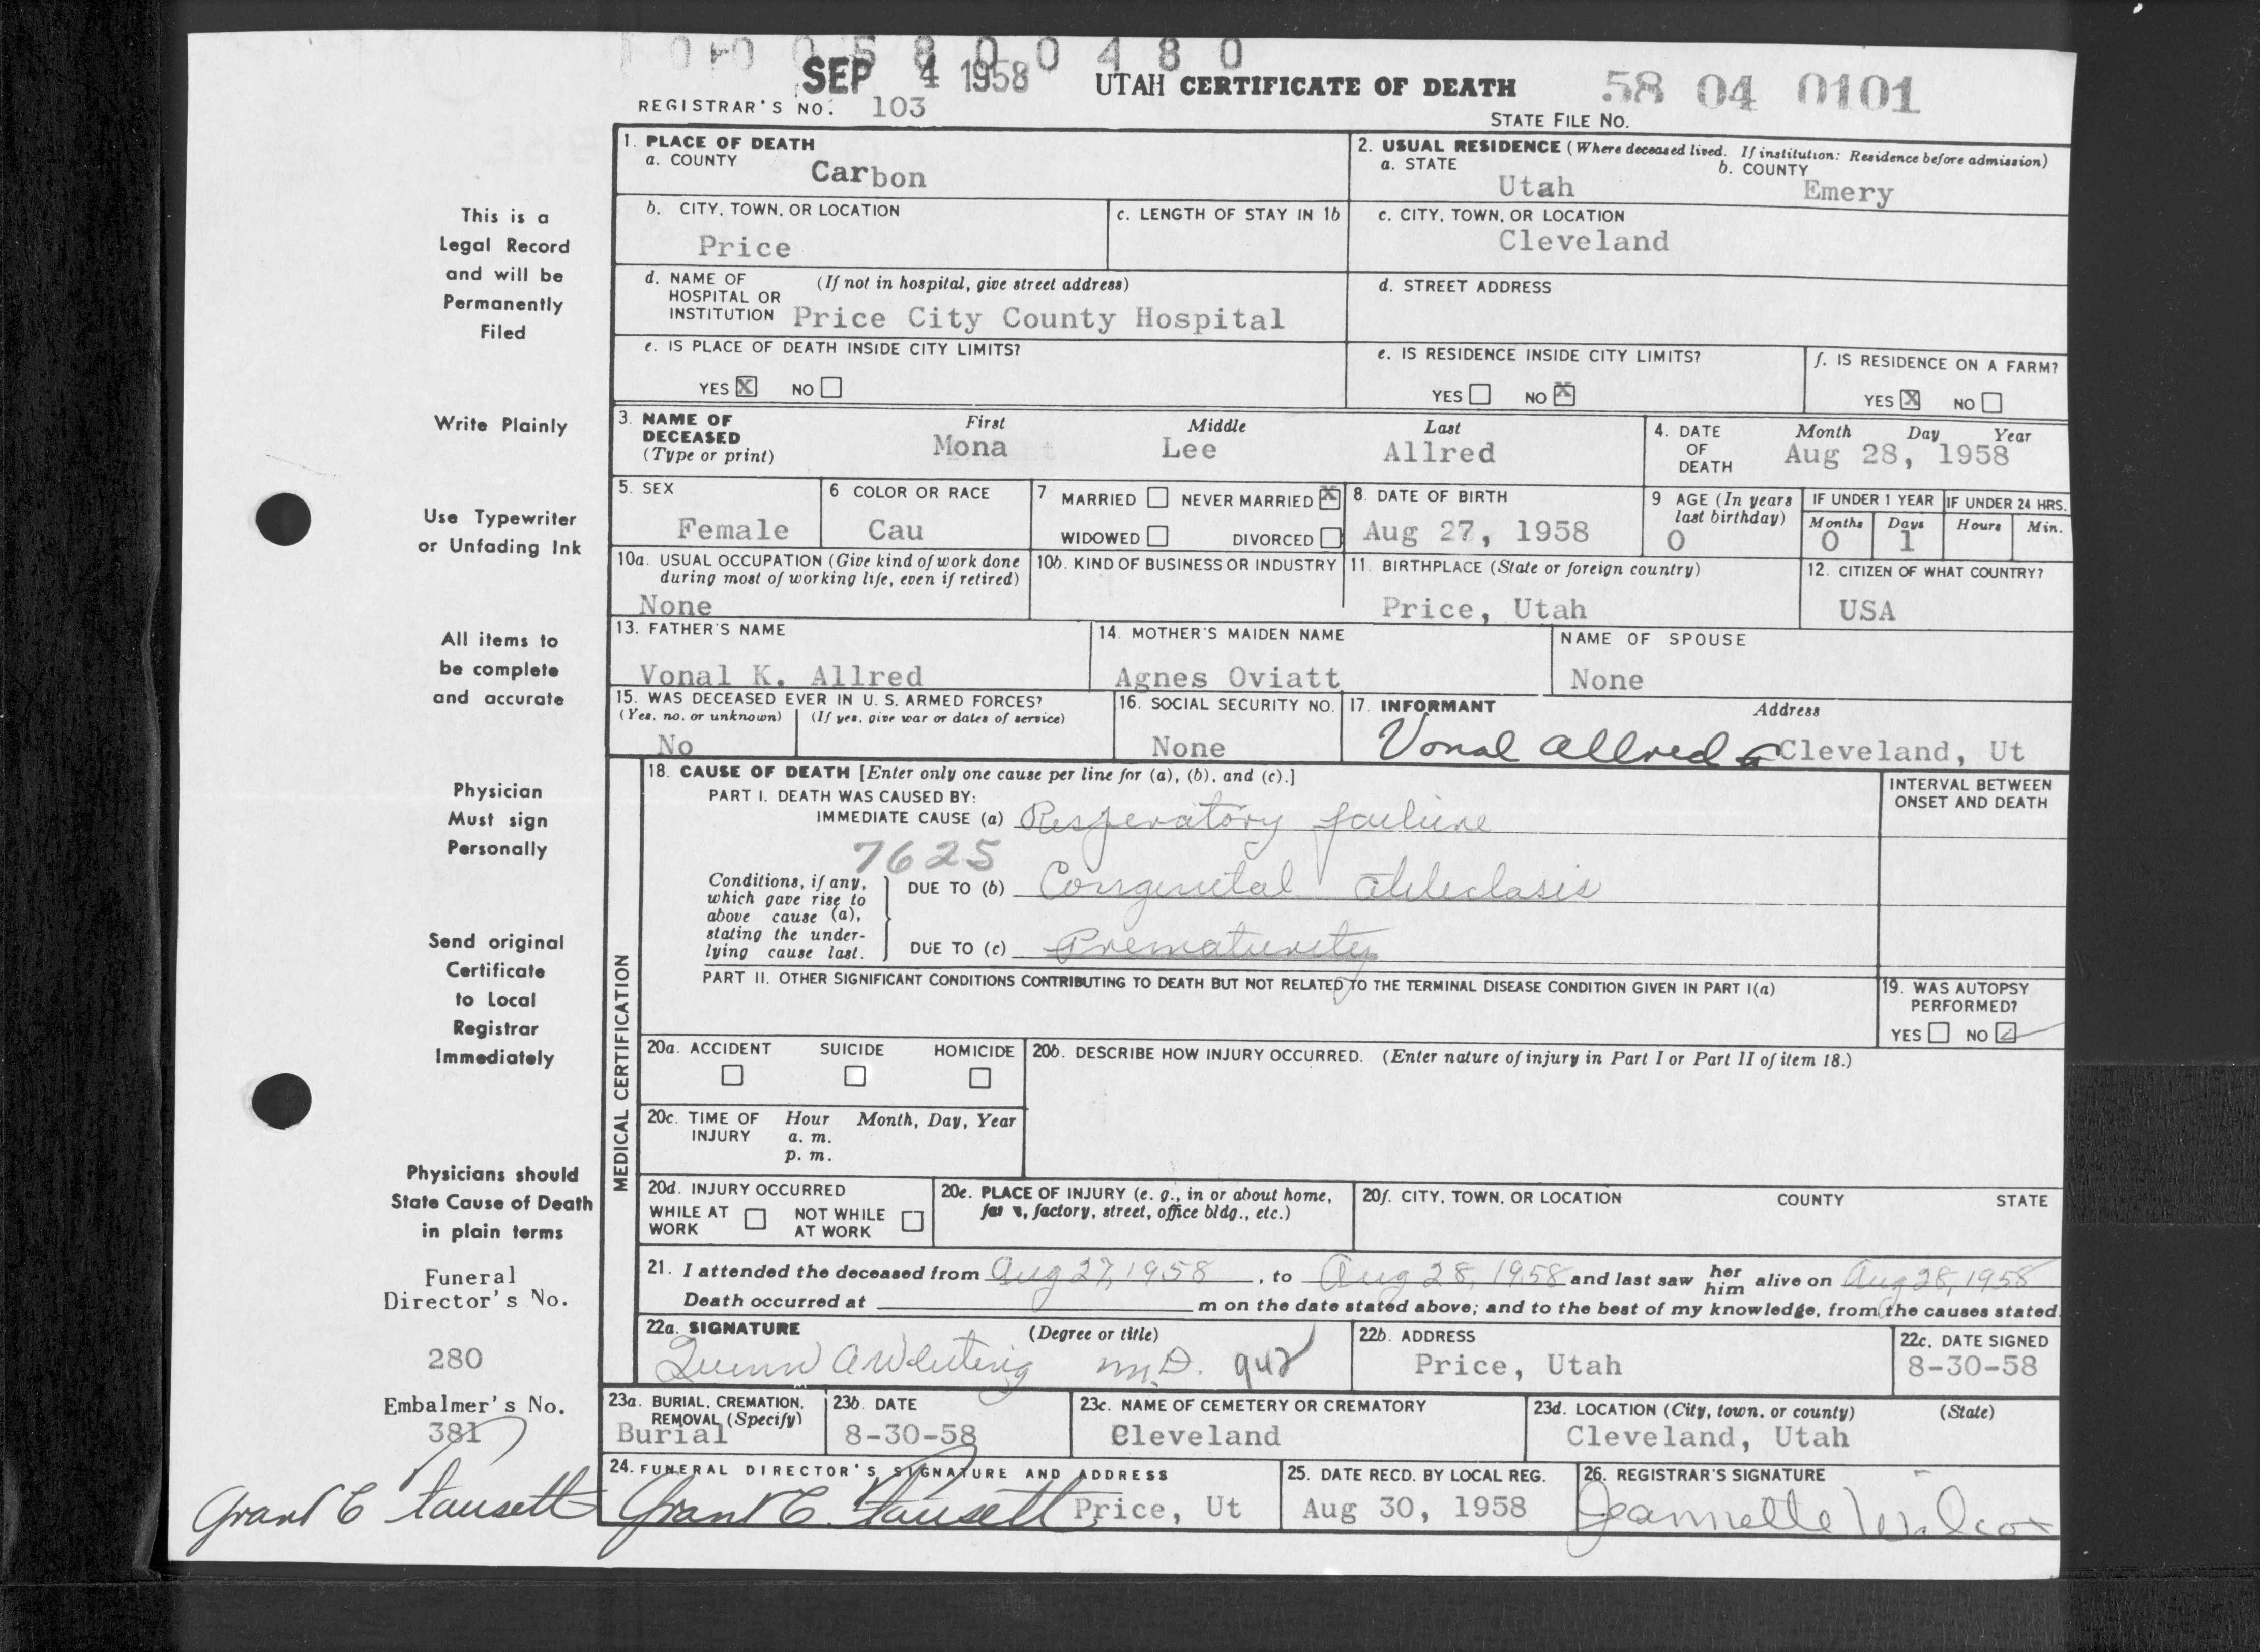 0 0 5 8 0 0 4 8 0
SEP 4 1958 UTAH CERTIFICATE OF DEATH 58 04 0101
REGISTRAR'S NO. 103
STATE FILE NO.
1. PLACE OF DEATH
a. COUNTY
Carbon
2. USUAL RESIDENCE (Where deceased lived. If institution: Residence before admission)
a. STATE b. COUNTY
Utah Emery
b. CITY, TOWN, OR LOCATION
Price
c. LENGTH OF STAY IN 1b
c. CITY, TOWN, OR LOCATION
Cleveland
d. NAME OF (If not in hospital, give street address)
HOSPITAL OR
INSTITUTION Price City County Hospital
d. STREET ADDRESS
e. IS PLACE OF DEATH INSIDE CITY LIMITS?
YES X NO
e. IS RESIDENCE INSIDE CITY LIMITS?
YES NO X
f. IS RESIDENCE ON A FARM?
YES X NO
3. NAME OF First Middle Last
DECEASED
(Type or print) Mona Lee Allred
4. DATE Month Day Year
OF
DEATH Aug 28, 1958
5. SEX
Female
6 COLOR OR RACE
Cau
7 MARRIED NEVER MARRIED X
WIDOWED DIVORCED
8. DATE OF BIRTH
Aug 27, 1958
9 AGE (In years
last birthday)
0
IF UNDER 1 YEAR
Months Days
0 1
IF UNDER 24 HRS.
Hours Min.
10a. USUAL OCCUPATION (Give kind of work done
during most of working life, even if retired)
None
10b. KIND OF BUSINESS OR INDUSTRY
11. BIRTHPLACE (State or foreign country)
Price, Utah
12. CITIZEN OF WHAT COUNTRY?
USA
13. FATHER'S NAME
Vonal K. Allred
14. MOTHER'S MAIDEN NAME
Agnes Oviatt
NAME OF SPOUSE
None
15. WAS DECEASED EVER IN U. S. ARMED FORCES?
(Yes, no, or unknown) (If yes, give war or dates of service)
No
16. SOCIAL SECURITY NO.
None
17. INFORMANT Address
Vonal Allred Cleveland, Ut
MEDICAL CERTIFICATION
18. CAUSE OF DEATH [Enter only one cause per line for (a), (b), and (c).]
PART I. DEATH WAS CAUSED BY:
IMMEDIATE CAUSE (a) Resperatory failure
7625
Conditions, if any,
which gave rise to
above cause (a),
stating the under-
lying cause last.
DUE TO (b) Congenital
DUE TO (c) Prematurity
INTERVAL BETWEEN
ONSET AND DEATH
PART II. OTHER SIGNIFICANT CONDITIONS CONTRIBUTING TO DEATH BUT NOT RELATED TO THE TERMINAL DISEASE CONDITION GIVEN IN PART I(a)
19. WAS AUTOPSY
PERFORMED?
YES NO
20a. ACCIDENT SUICIDE HOMICIDE
20b. DESCRIBE HOW INJURY OCCURRED. (Enter nature of injury in Part I or Part II of item 18.)
20c. TIME OF Hour Month, Day, Year
INJURY a. m.
p. m.
20d. INJURY OCCURRED
WHILE AT NOT WHILE
WORK AT WORK
20e. PLACE OF INJURY (e. g., in or about home,
factory, street, office bldg., etc.)
20f. CITY, TOWN, OR LOCATION COUNTY STATE
21. I attended the deceased from Aug 27, 1958, to Aug 28, 1958 and last saw her him alive on Aug 28, 1958
Death occurred at m on the date stated above; and to the best of my knowledge, from the causes stated.
22a. SIGNATURE (Degree or title)
Quinn A Whiting M.D. 942
22b. ADDRESS
Price, Utah
22c. DATE SIGNED
8-30-58
23a. BURIAL, CREMATION,
REMOVAL (Specify)
Burial
23b. DATE
8-30-58
23c. NAME OF CEMETERY OR CREMATORY
Cleveland
23d. LOCATION (City, town, or county) (State)
Cleveland, Utah
24. FUNERAL DIRECTOR'S SIGNATURE AND ADDRESS
Grant C. Fausett Price, Ut
25. DATE RECD. BY LOCAL REG.
Aug 30, 1958
26. REGISTRAR'S SIGNATURE
Jeannette Wilcox
This is a
Legal Record
and will be
Permanently
Filed
Write Plainly
Use Typewriter
or Unfading Ink
All items to
be complete
and accurate
Physician
Must sign
Personally
Send original
Certificate
to Local
Registrar
Immediately
Physicians should
State Cause of Death
in plain terms
Funeral
Director's No.
280
Embalmer's No.
381
Grant C Fausett